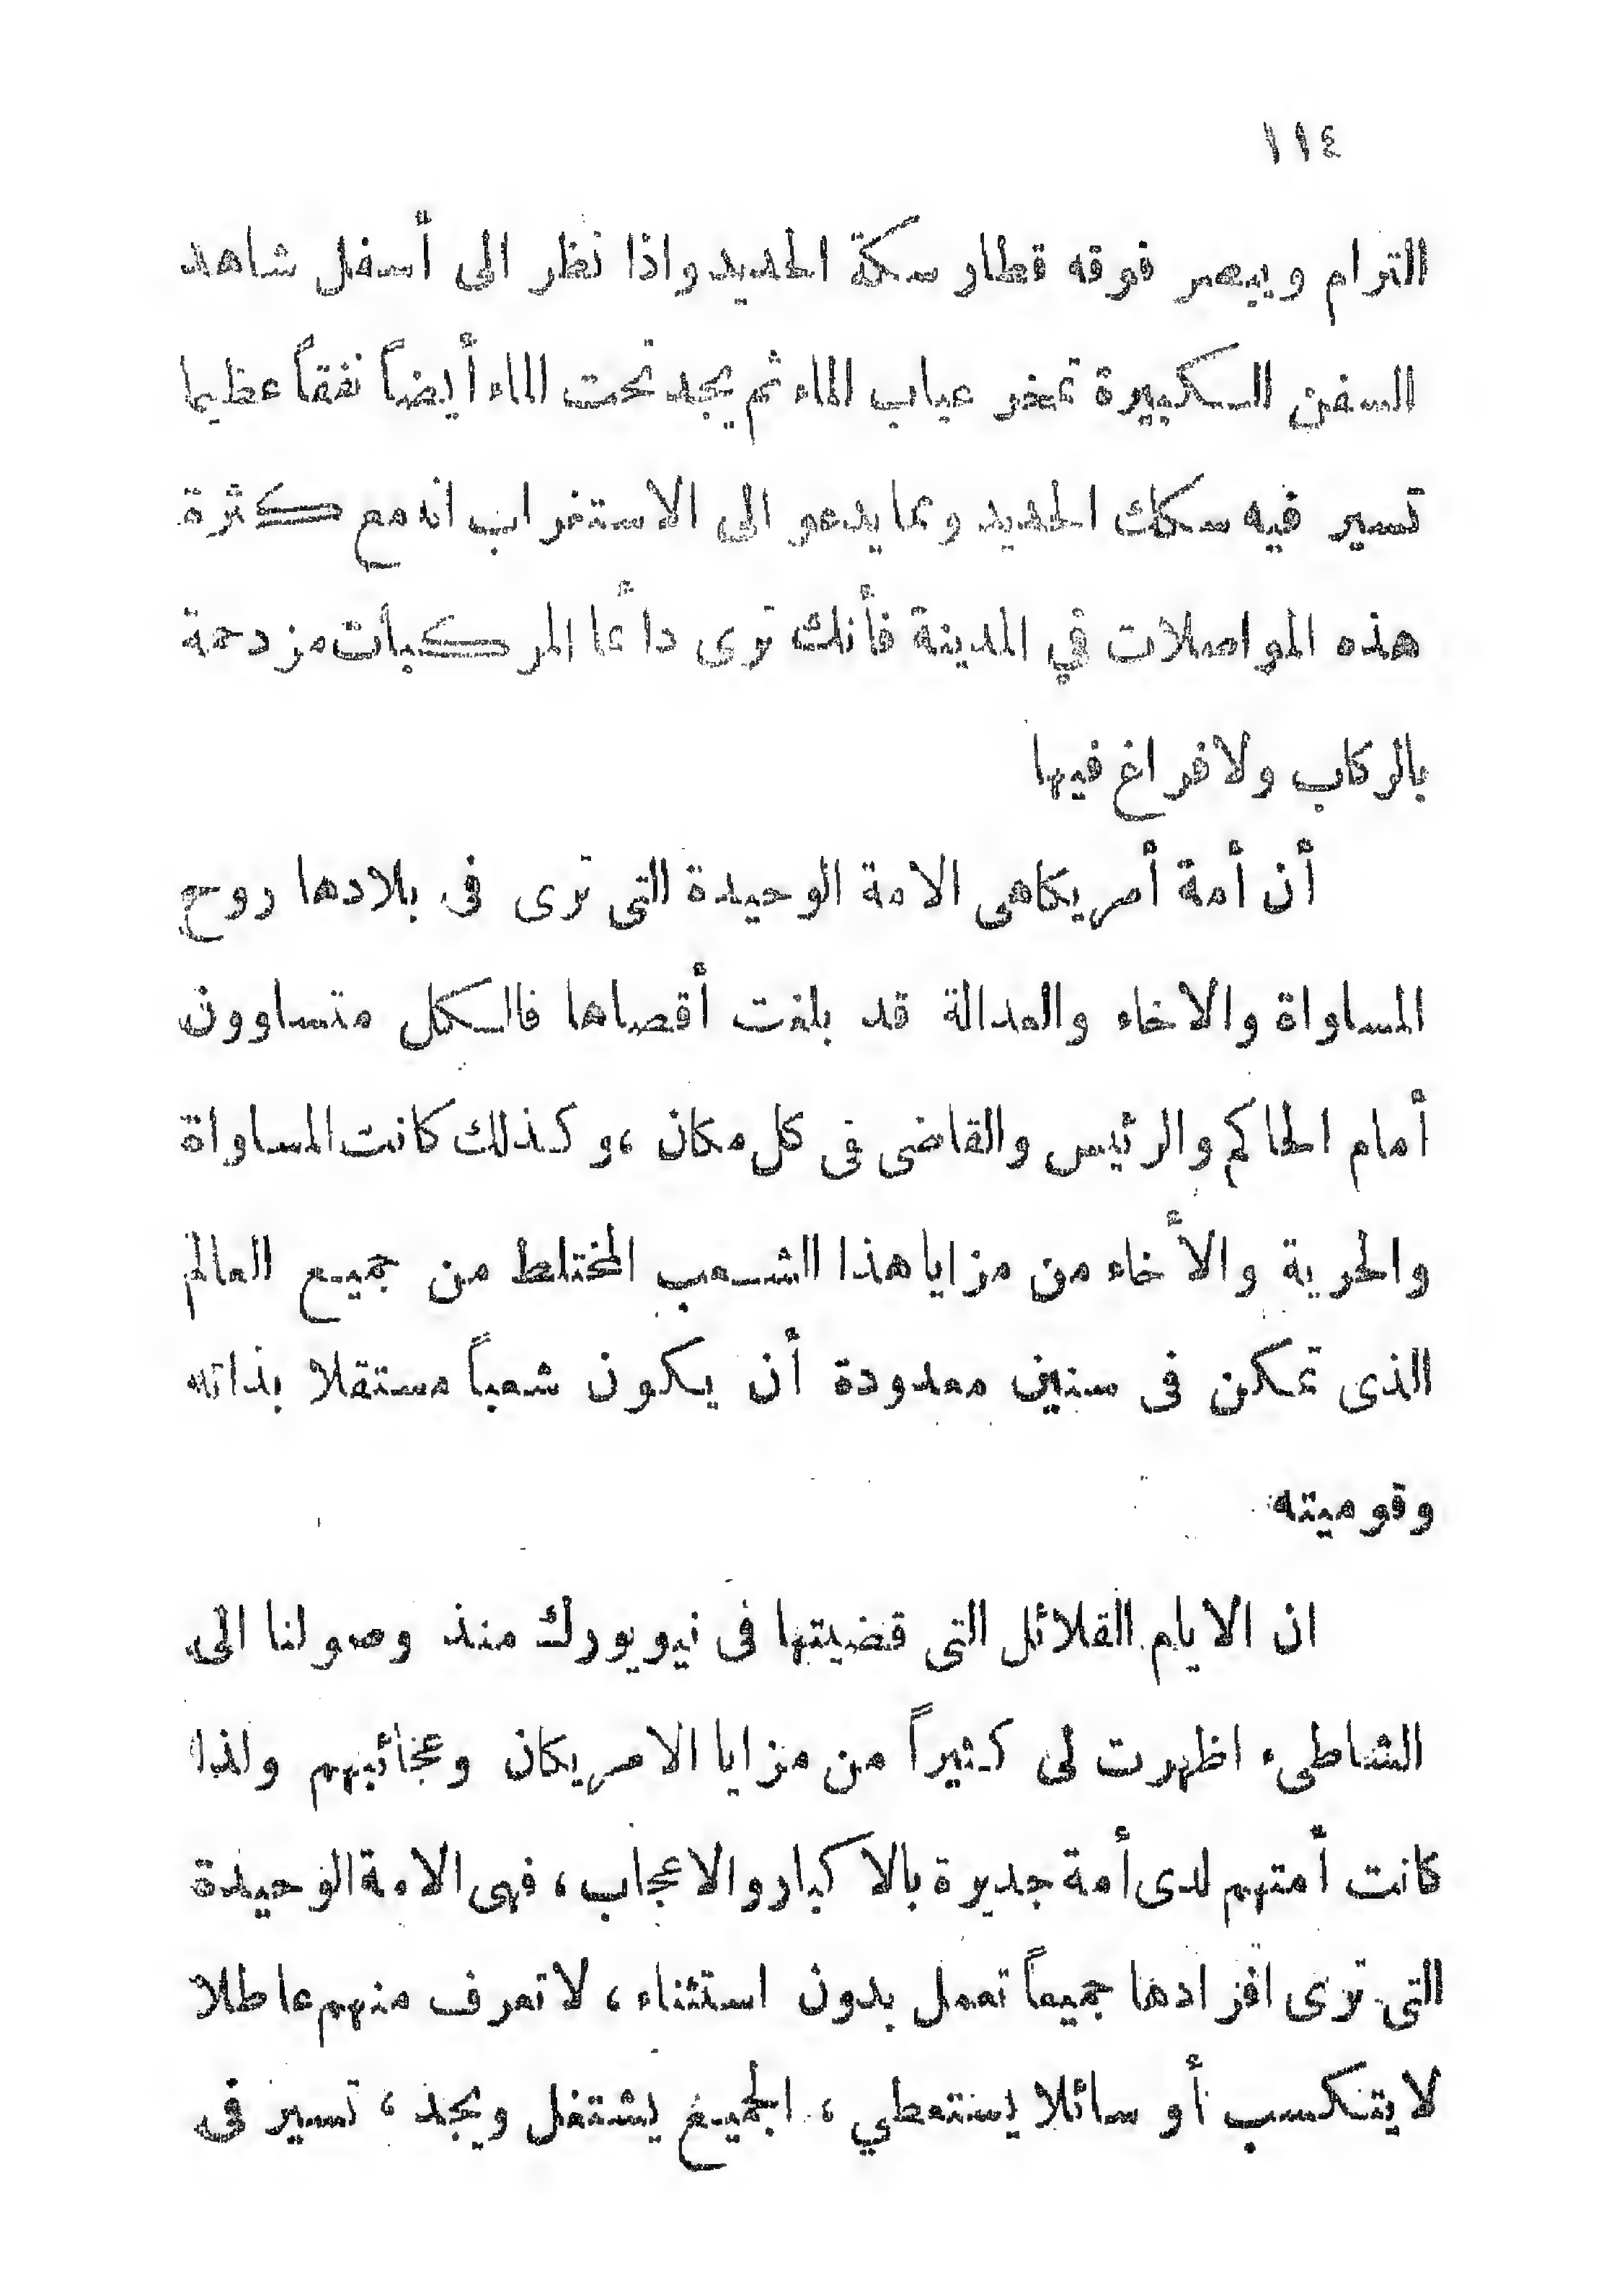 ١١٤
الترام ويبصر فوقه قطار سكة الحديد واذا نظر الى أسفل شاهد
السفن الكبيرة تمخر عباب الماء ثم يجد تحت الماء أيضاً نفقاً عظيما
تسير فيه سكك الحديد ومما يدعو الى الاستغراب انه مع كثرة
هذه المواصلات في المدينة فأنك ترى دائما المركبات مزدحمة
بالركاب ولا فراغ فيها
أن أمة أمريكا هى الامة الوحيدة التى ترى فى بلادها روح
المساواة والاخاء والعدالة قد بلغت أقصاها فالكل متساوون
أمام الحاكم والرئيس والقاضى فى كل مكان ، وكذلك كانت المساواة
والحرية والأخاء من مزايا هذا الشعب المختلط من جميع العالم
الذى تمكن فى سنين معدودة أن يكون شعباً مستقلا بذاته
وقوميته
ان الايام القلائل التى قضيتها فى نيويورك منذ وصولنا الى
الشاطىء اظهرت لى كثيراً من مزايا الامريكان وعجائبهم ولذا
كانت أمتهم لدى أمة جديرة بالاكبار والاعجاب ، فهى الامة الوحيدة
التى ترى افرادها جميعاً تعمل بدون استثناء ، لا تعرف منهم عاطلا
لا يتكسب أو سائلا يستعطي ، الجميع يشتغل ويجد ، تسير فى